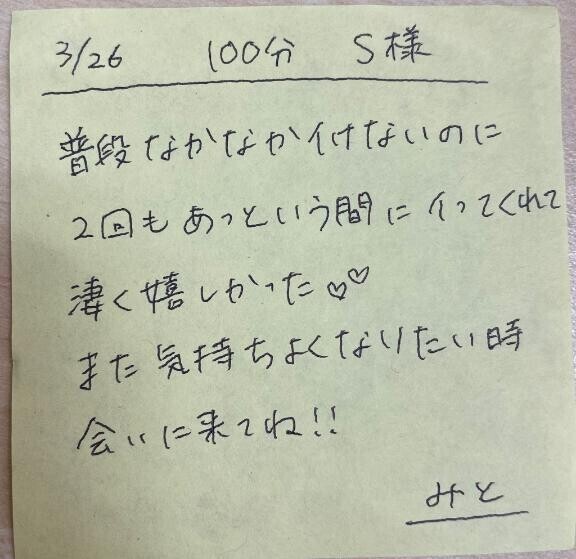 3/26 100分 S様
普段なかなかイけないのに
2回もあっという間にイってくれて
凄く嬉しかった♡♡
また気持ちよくなりたい時
会いに来てね!!
みと